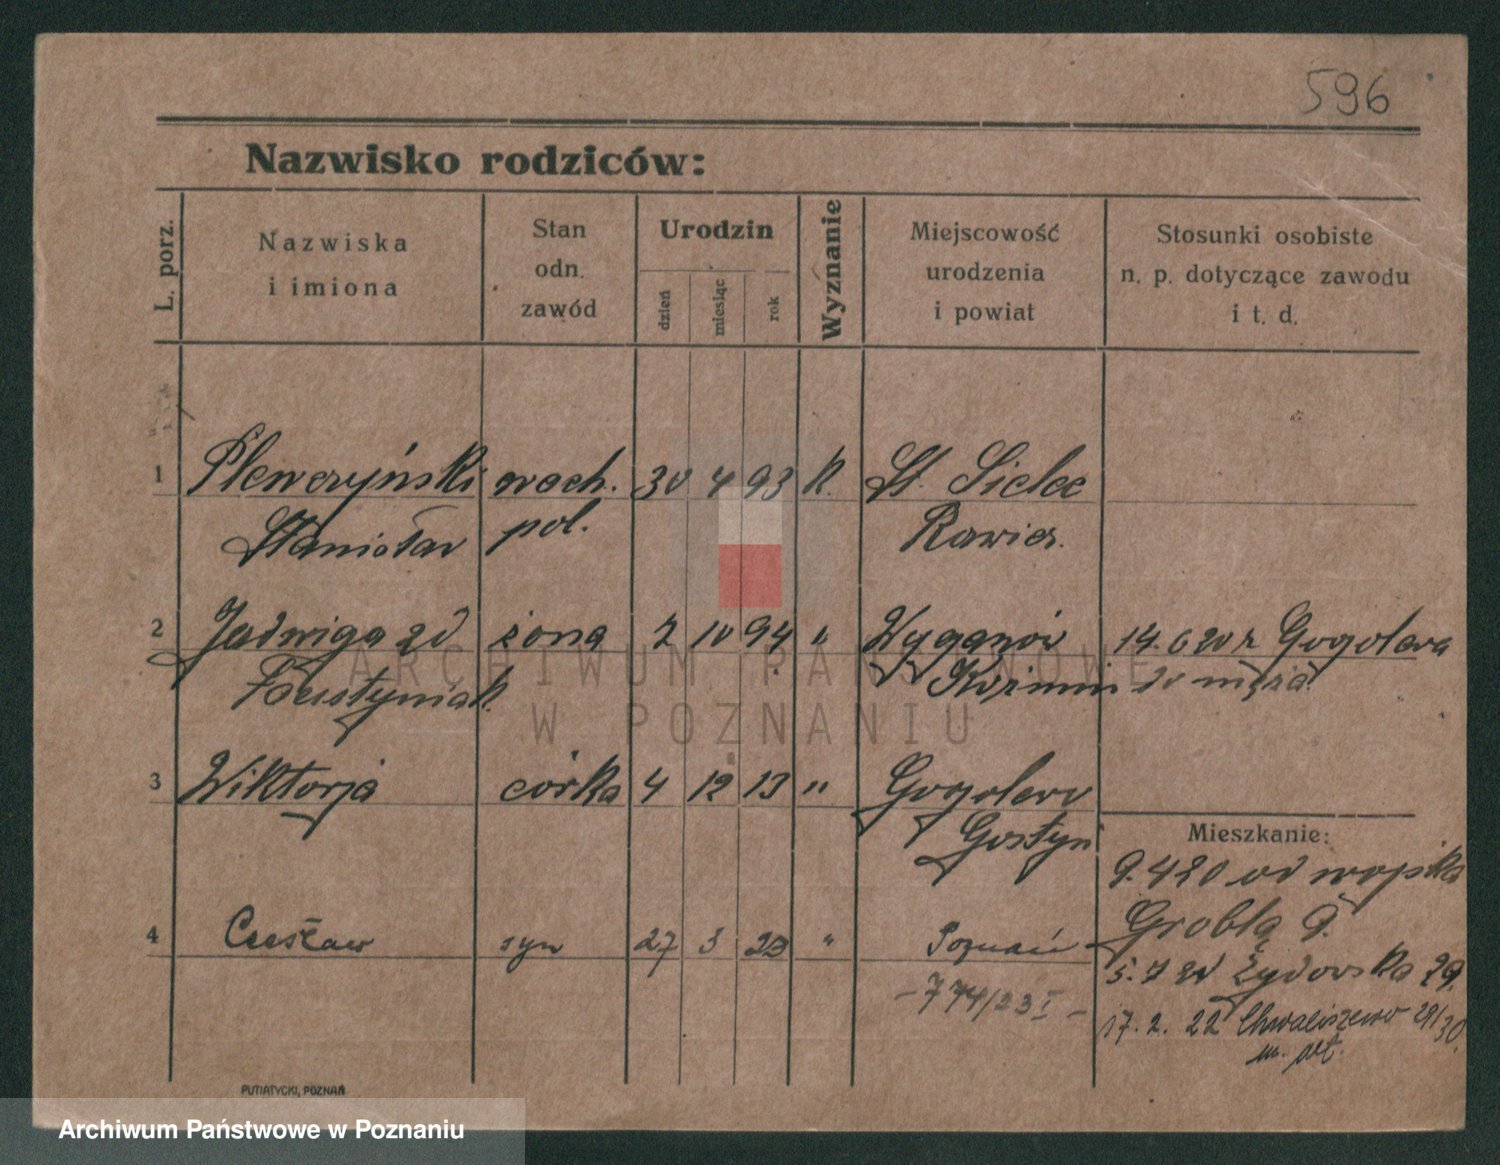 596
Nazwisko rodziców:
L. porz.
Nazwiska
i imiona
Stan
odn.
zawód
Urodzin
dzień
miesiąc
rok
Wyznanie
Miejscowość
urodzenia
i powiat
Stosunki osobiste
n. p. dotyczące zawodu
i t. d.
1 Plewczyński wach. 30 4 93 k. St. Sielec
Stanisław pol. Rawicz.
2 Jadwiga zd żona 2 10 94 " Wyganów 14.6 20 z Gogolewa
Krzmin do męża
3 Wiktorja córka 4 12 13 " Gogolewo
Gostyń
Mieszkanie:
9.4 20 od wojska
Grobla 9.
4 Czesław syn 27 3 23 " Poznań
5.7 20 Żydowska 29.
- 774/23 I -
17. 2. 22 Chwaliszewo 29/30.
m. pt.
PUTIATYCKI, POZNAŃ
ARCHIWUM PAŃSTWOWE
W POZNANIU
Archiwum Państwowe w Poznaniu